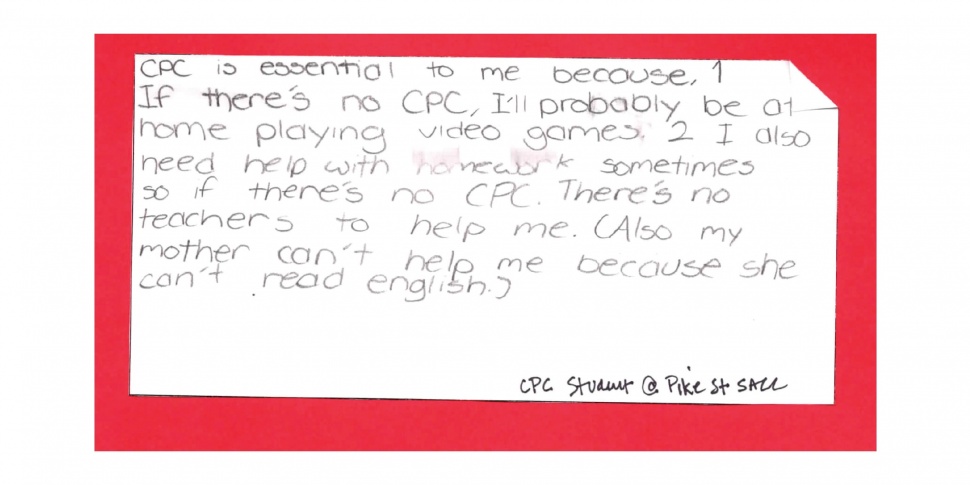 CPC is essential to me because, 1
If there's no CPC, I'll probably be at
home playing video games. 2 I also
need help with homework sometimes
so if there's no CPC. There's no
teachers to help me. (Also my
mother can't help me because she
can't read english.)
CPC Student @ Pike St SACC